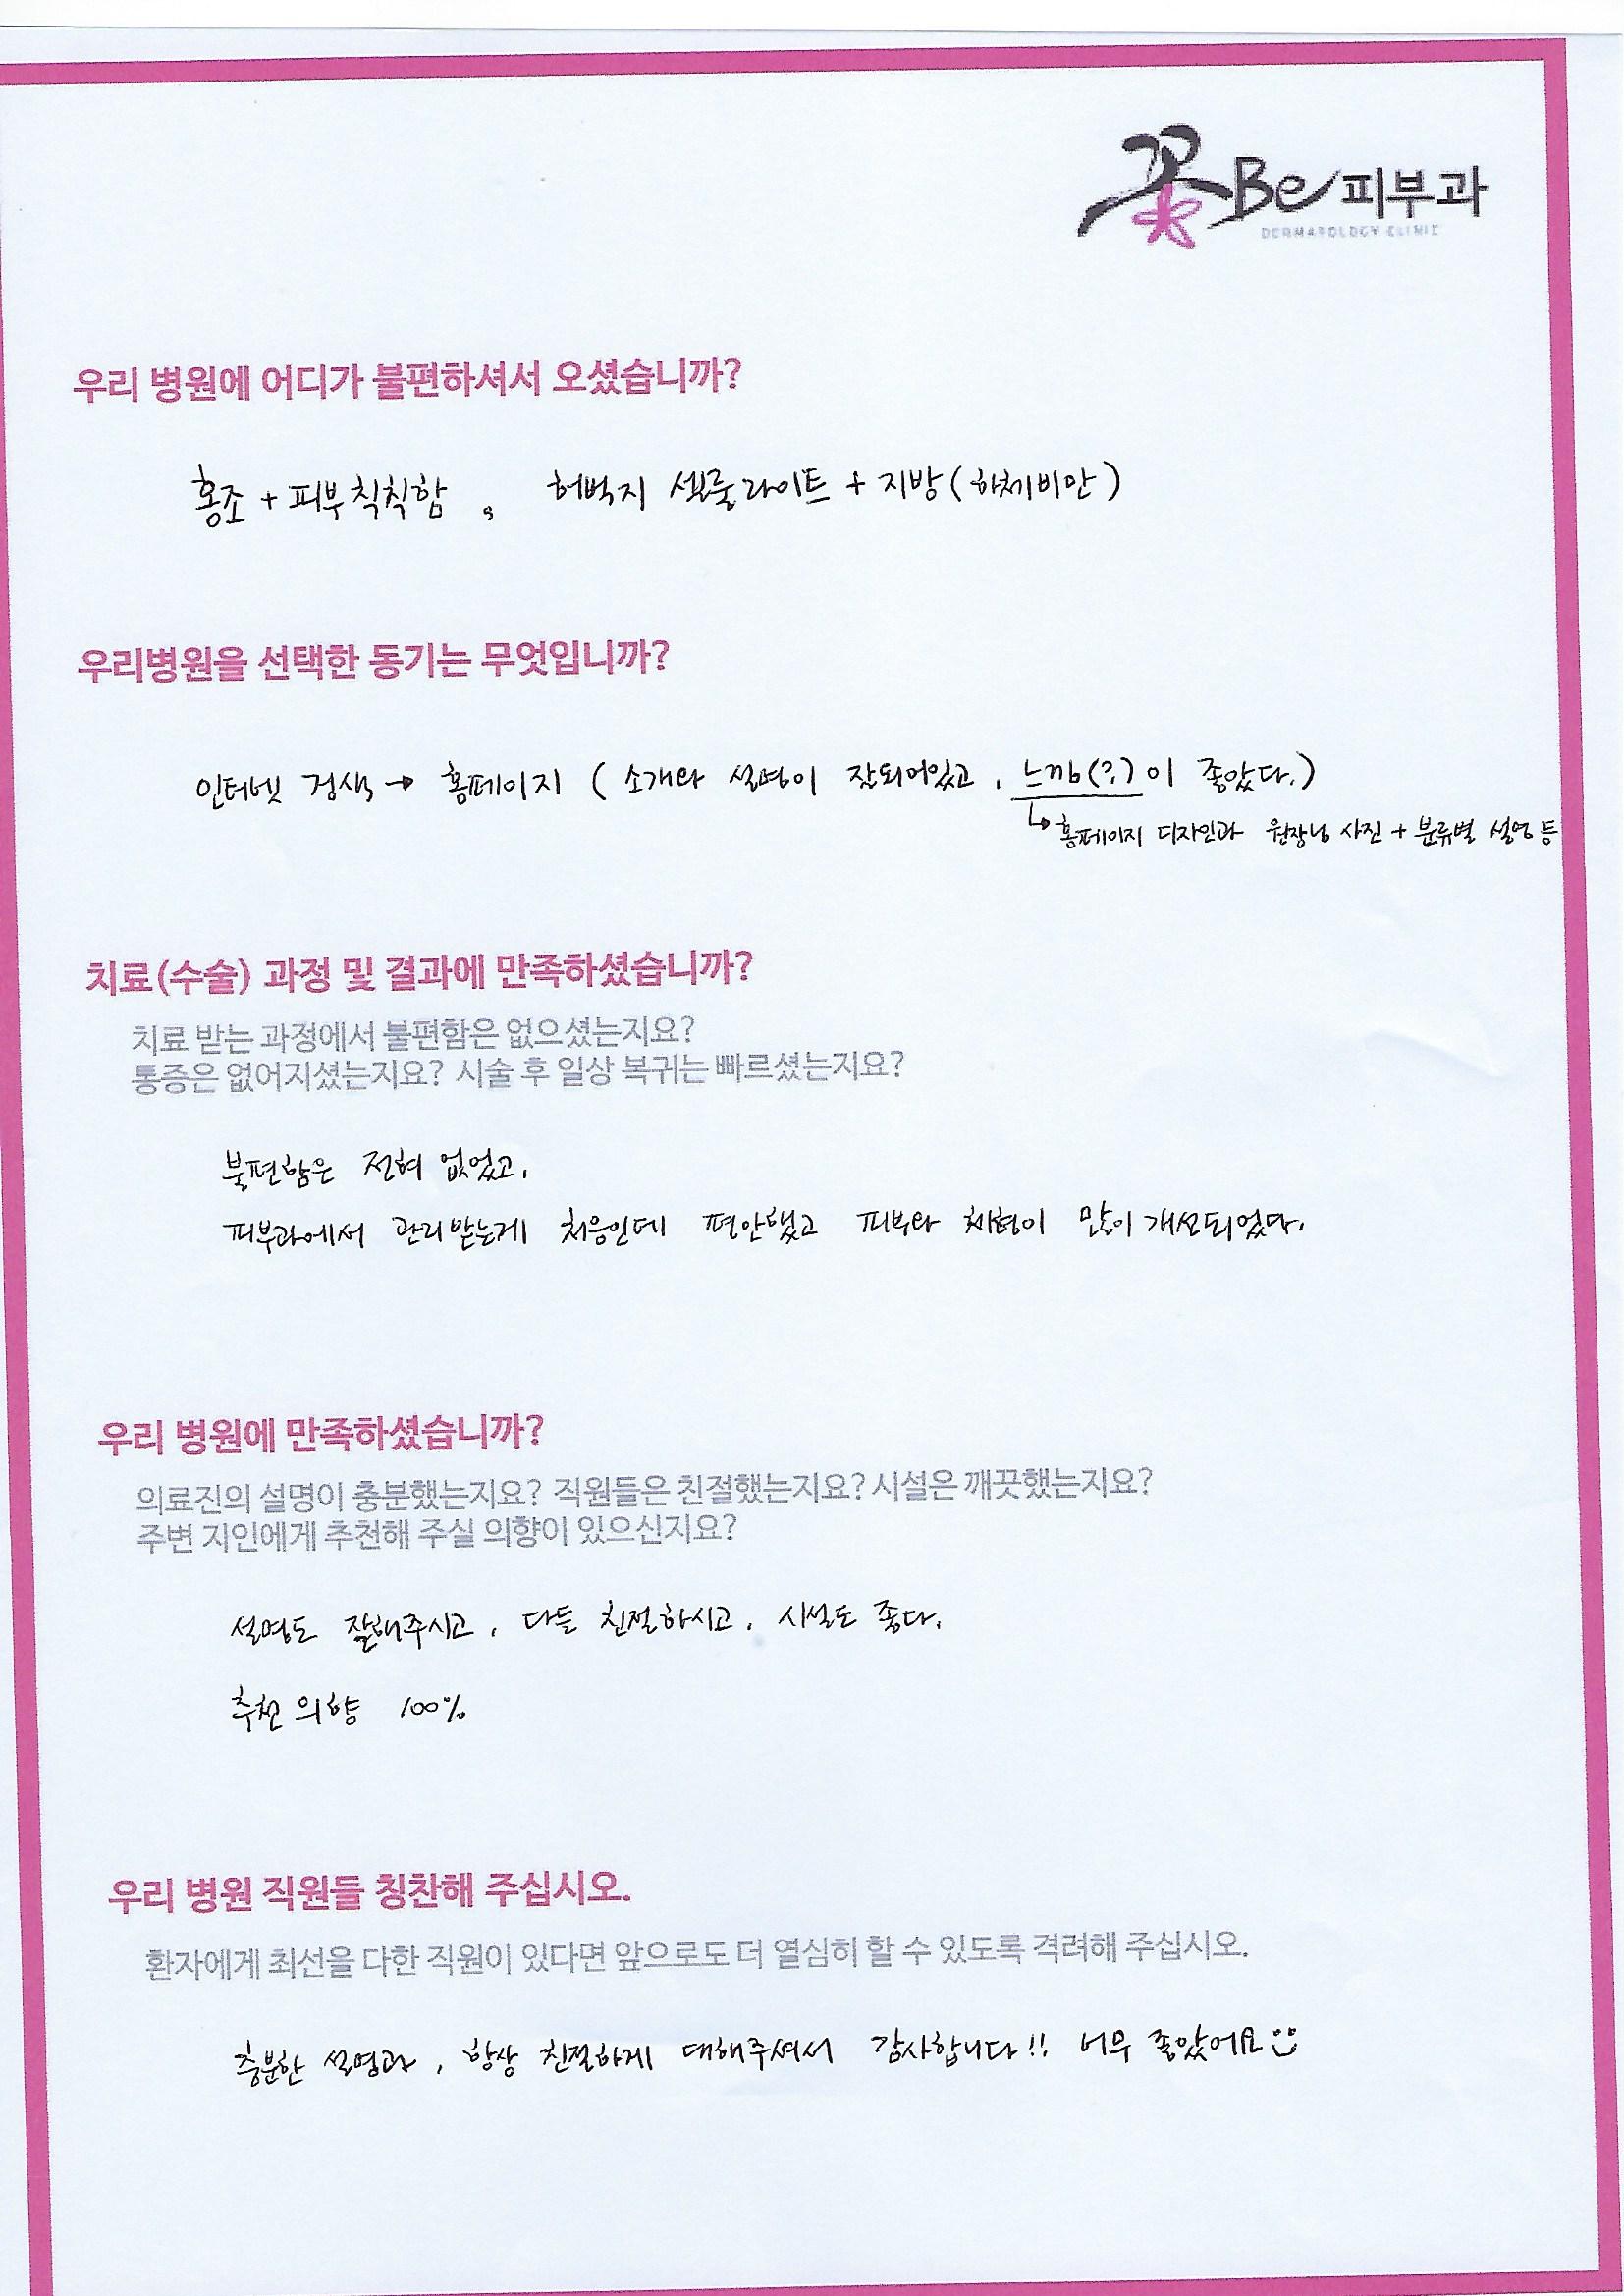 Be 피부과
DERMATOLOGY CLINIC
우리 병원에 어디가 불편하셔서 오셨습니까?
홍조 + 피부칙칙함, 허벅지 셀룰라이트 + 지방 (하체비만)
우리병원을 선택한 동기는 무엇입니까?
인터넷 검색 → 홈페이지 (소개와 설명이 잘되어있고, 느낌(?)이 좋았다.)
↳ 홈페이지 디자인과 원장님 사진 + 분류별 설명 등
치료(수술) 과정 및 결과에 만족하셨습니까?
치료 받는 과정에서 불편함은 없으셨는지요?
통증은 없어지셨는지요? 시술 후 일상 복귀는 빠르셨는지요?
불편함은 전혀 없었고,
피부과에서 관리받는게 처음인데 편안했고 피부와 체형이 많이 개선되었다.
우리 병원에 만족하셨습니까?
의료진의 설명이 충분했는지요? 직원들은 친절했는지요? 시설은 깨끗했는지요?
주변 지인에게 추천해 주실 의향이 있으신지요?
설명도 잘해주시고, 다들 친절하시고, 시설도 좋다.
추천 의향 100%
우리 병원 직원들 칭찬해 주십시오.
환자에게 최선을 다한 직원이 있다면 앞으로도 더 열심히 할 수 있도록 격려해 주십시오.
충분한 설명과, 항상 친절하게 대해주셔서 감사합니다!! 너무 좋았어요